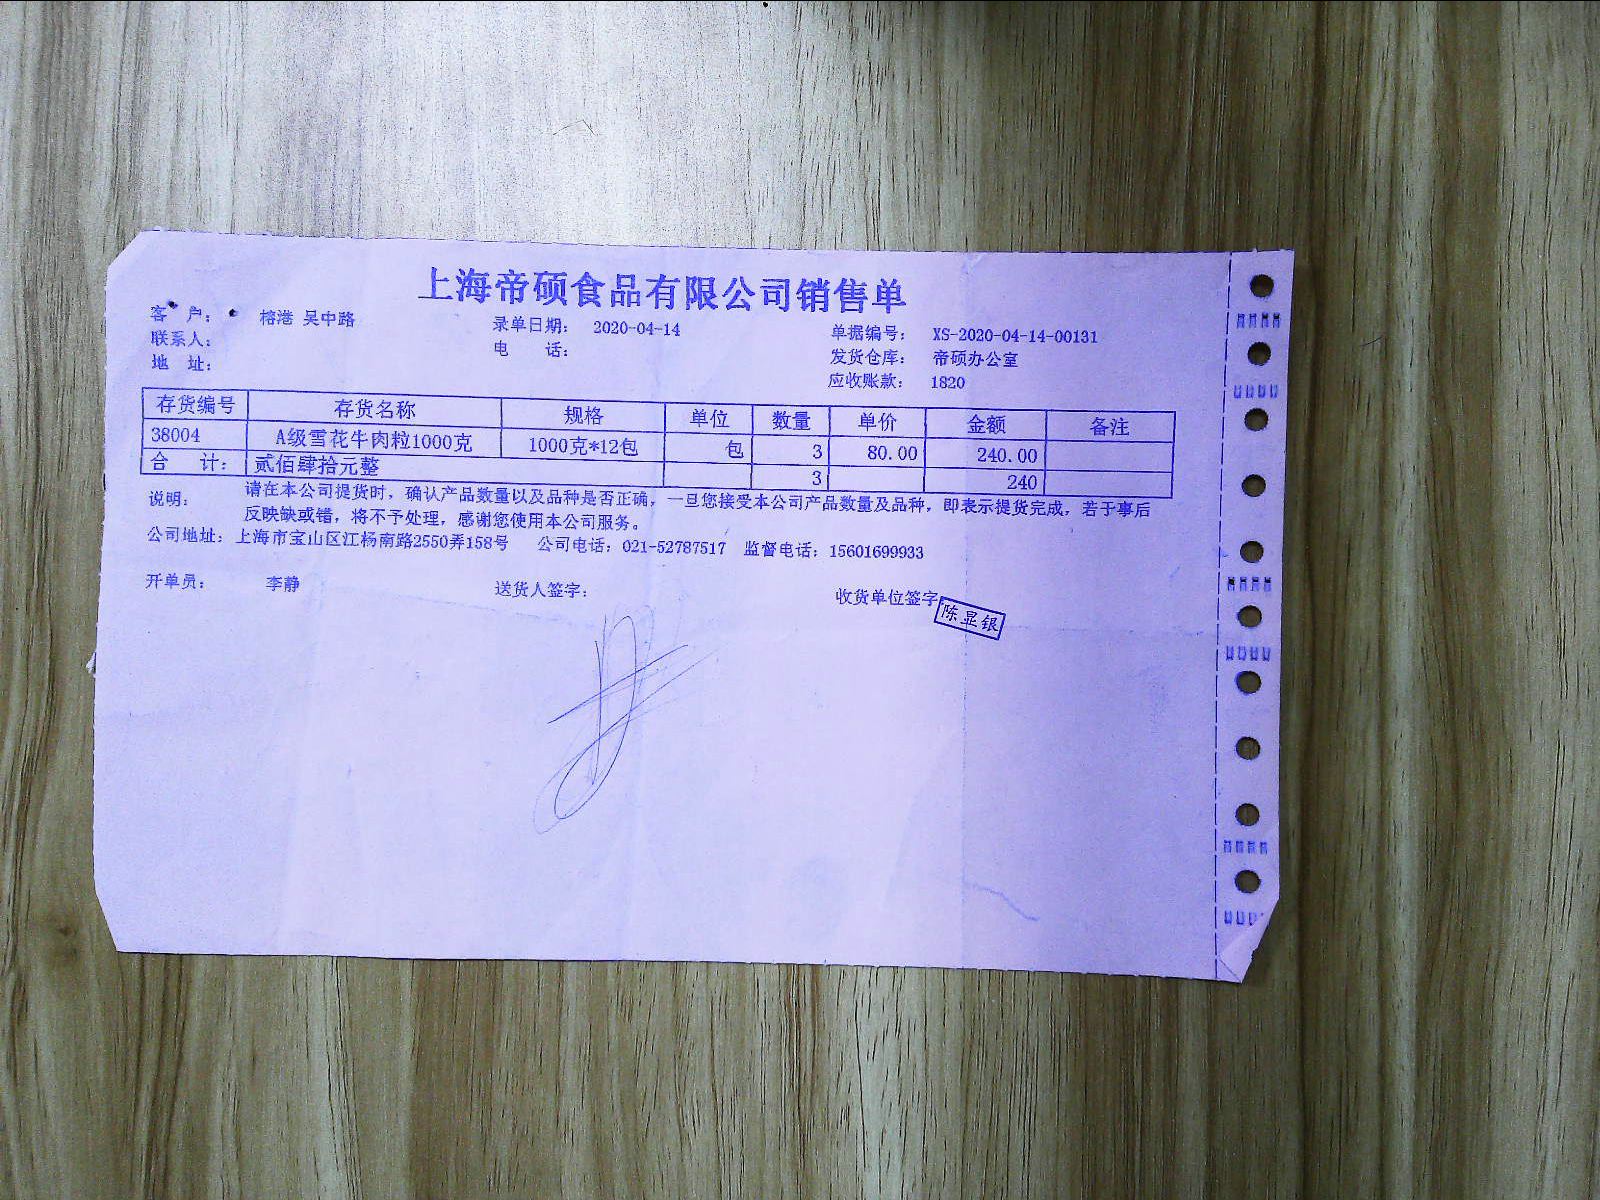 上海帝硕食品有限公司销售单
客 户： 榕港 吴中路 录单日期： 2020-04-14 单据编号： XS-2020-04-14-00131
联系人： 电 话： 发货仓库： 帝硕办公室
地 址： 应收账款： 1820
存货编号 存货名称 规格 单位 数量 单价 金额 备注
38004 A级雪花牛肉粒1000克 1000克*12包 包 3 80.00 240.00
合 计： 贰佰肆拾元整 3 240
说明： 请在本公司提货时，确认产品数量以及品种是否正确，一旦您接受本公司产品数量及品种，即表示提货完成，若于事后
反映缺或错，将不予处理，感谢您使用本公司服务。
公司地址：上海市宝山区江杨南路2550弄158号 公司电话：021-52787517 监督电话：15601699933
开单员： 李静 送货人签字： 收货单位签字
陈显银